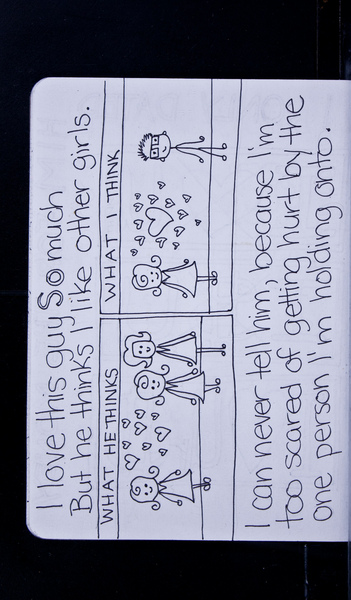 I love this guy So much
But he thinks I like other girls.
WHAT HE THINKS
WHAT I THINK
I can never tell him, because I'm
too scared of getting hurt by the
one person I'm holding onto.